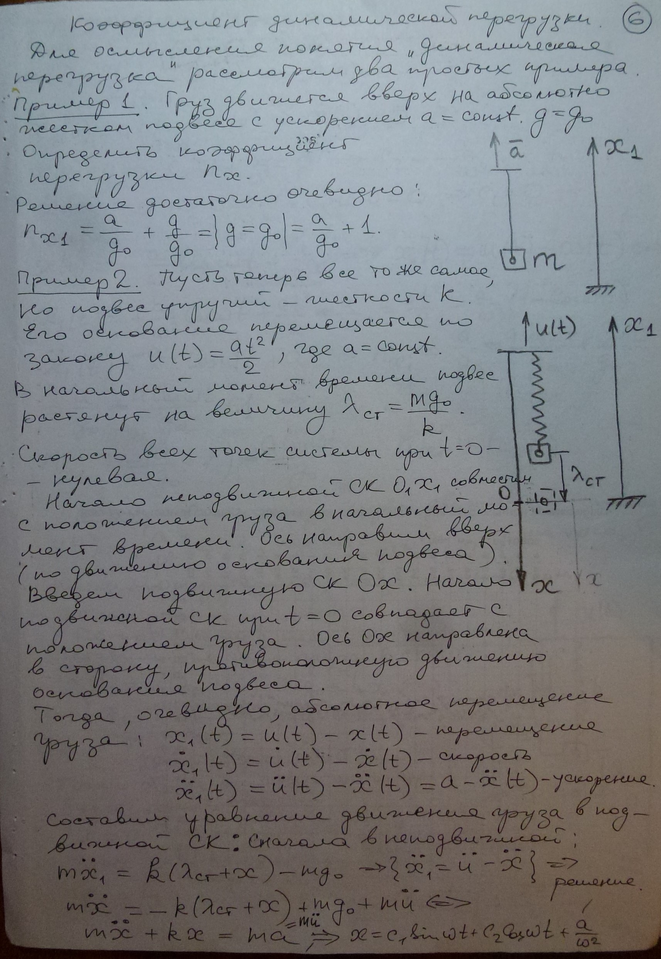 Коэффициент динамической перегрузки. 6
Для осмысления понятия „динамическая
перегрузка" рассмотрим два простых примера.
Пример 1. Груз движется вверх на абсолютно
жестком подвесе с ускорением a = const. g = g₀
Определить коэффициент
перегрузки nₓ.
Решение достаточно очевидно:
nₓ₁ = a/g₀ + g/g₀ = |g = g₀| = a/g₀ + 1.
ā
x₁
m
Пример 2. Пусть теперь все то же самое,
но подвес упругий – жесткости k.
Его основание перемещается по
закону u(t) = at²/2, где a = const.
В начальный момент времени подвес
растянут на величину λст = mg₀/k.
Скорость всех точек системы при t = 0 –
– нулевая.
u(t)
x₁
λст
0
x
x
Начало неподвижной СК O₁x₁ совместим
с положением груза в начальный мо
мент времени. Ось направим вверх
(по движению основания подвеса).
Введем подвижную СК Ox. Начало
подвижной СК при t = 0 совпадает с
положением груза. Ось Ox направлена
в сторону, противоположную движению
основания подвеса.
Тогда, очевидно, абсолютное перемещение
груза: x₁(t) = u(t) – x(t) – перемещение
ẋ₁(t) = u̇(t) – ẋ(t) – скорость
ẍ₁(t) = ü(t) – ẍ(t) = a – ẍ(t) – ускорение.
Составим уравнение движения груза в под–
вижной СК: сначала в неподвижной:
mẍ₁ = k(λст + x) – mg₀ → {ẍ₁ = ü – ẍ} ⇒
решение.
mẍ = –k(λст + x) + mg₀ + mü ⇔
mẍ + kx = ma = mü ⇒ x = c₁ sin ωt + c₂ cos ωt + a/ω²